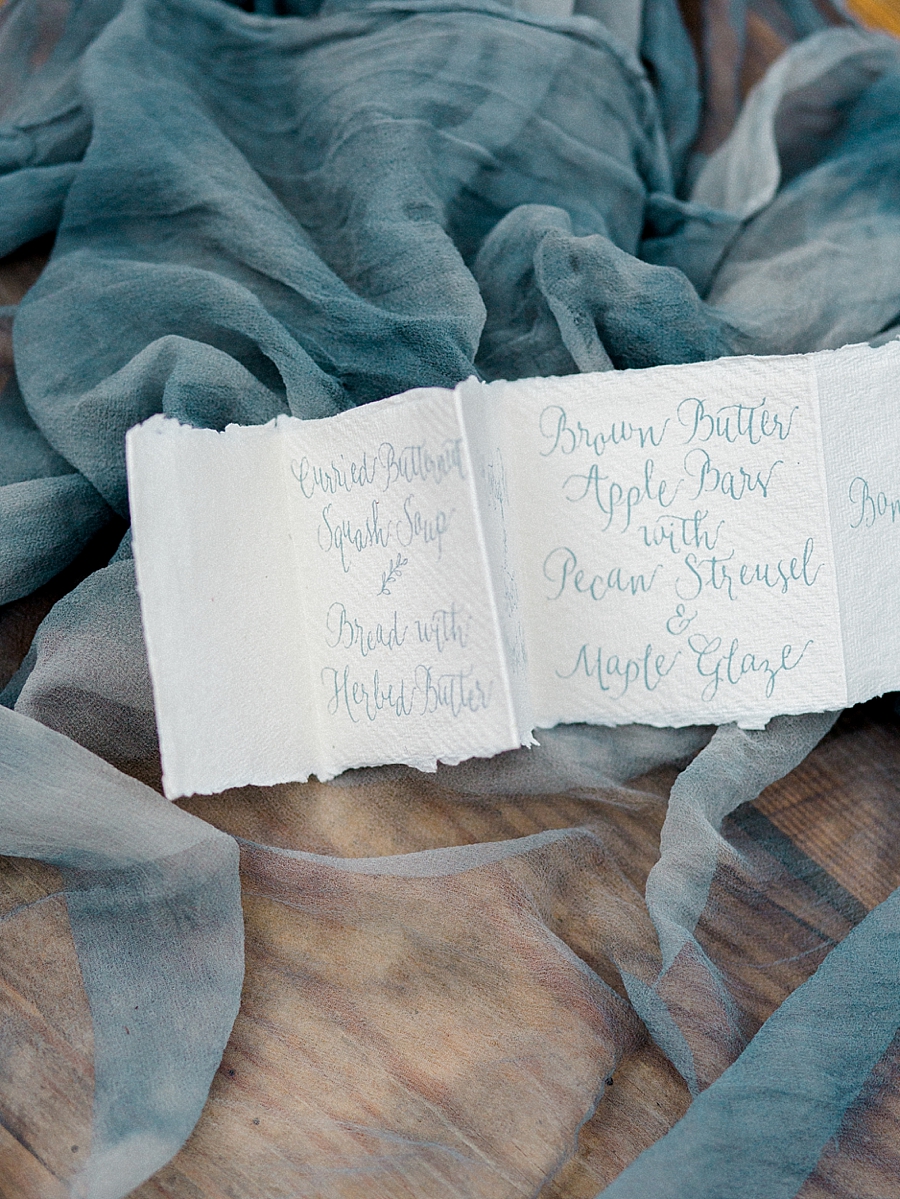 Curried Butternut
Squash Soup
Bread with
Herbed Butter
Brown Butter
Apple Bars
with
Pecan Streusel
&
Maple Glaze